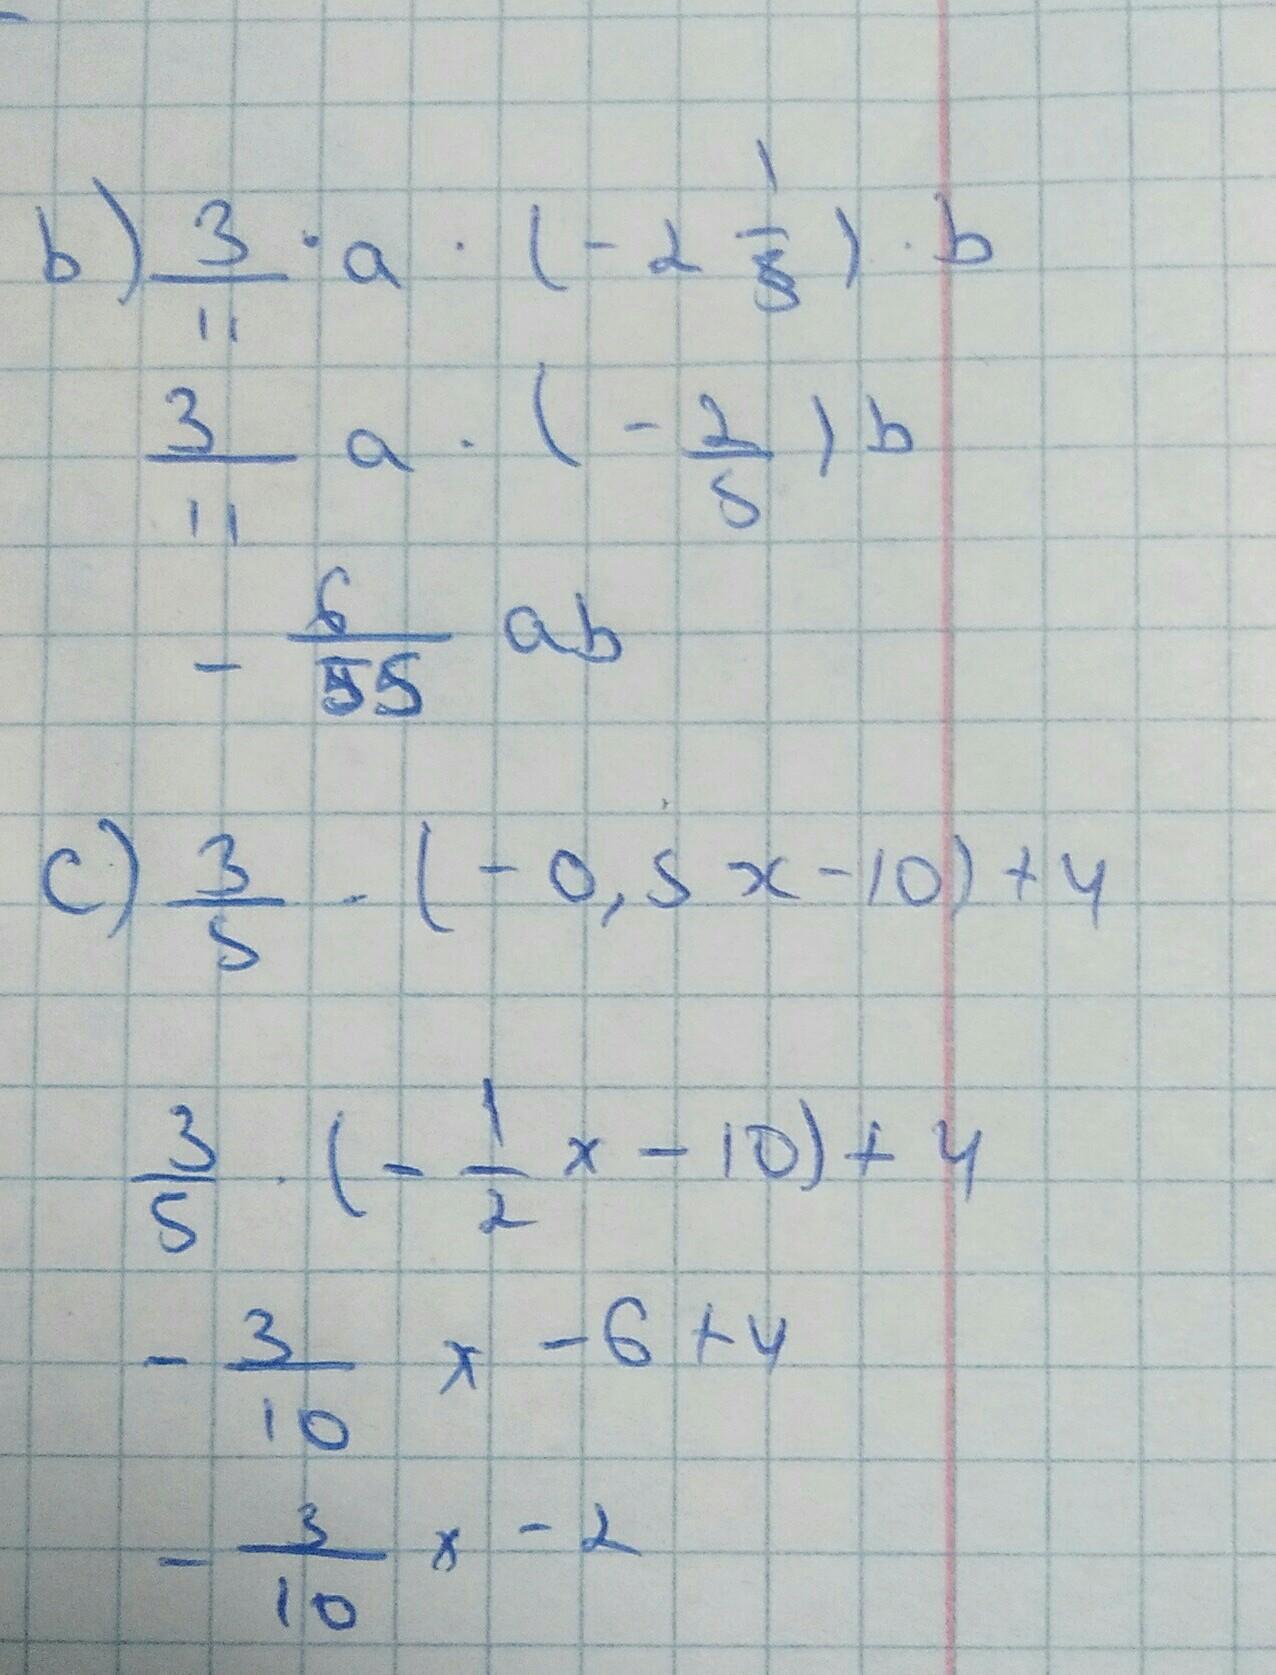 b) 3/11 · a · (-2 1/5) · b
3/11 a · (-2/5) b
- 6/55 ab
c) 3/5 · (-0,5x-10)+4
3/5 · (-1/2 x - 10) + 4
- 3/10 x - 6 + 4
- 3/10 x - 2